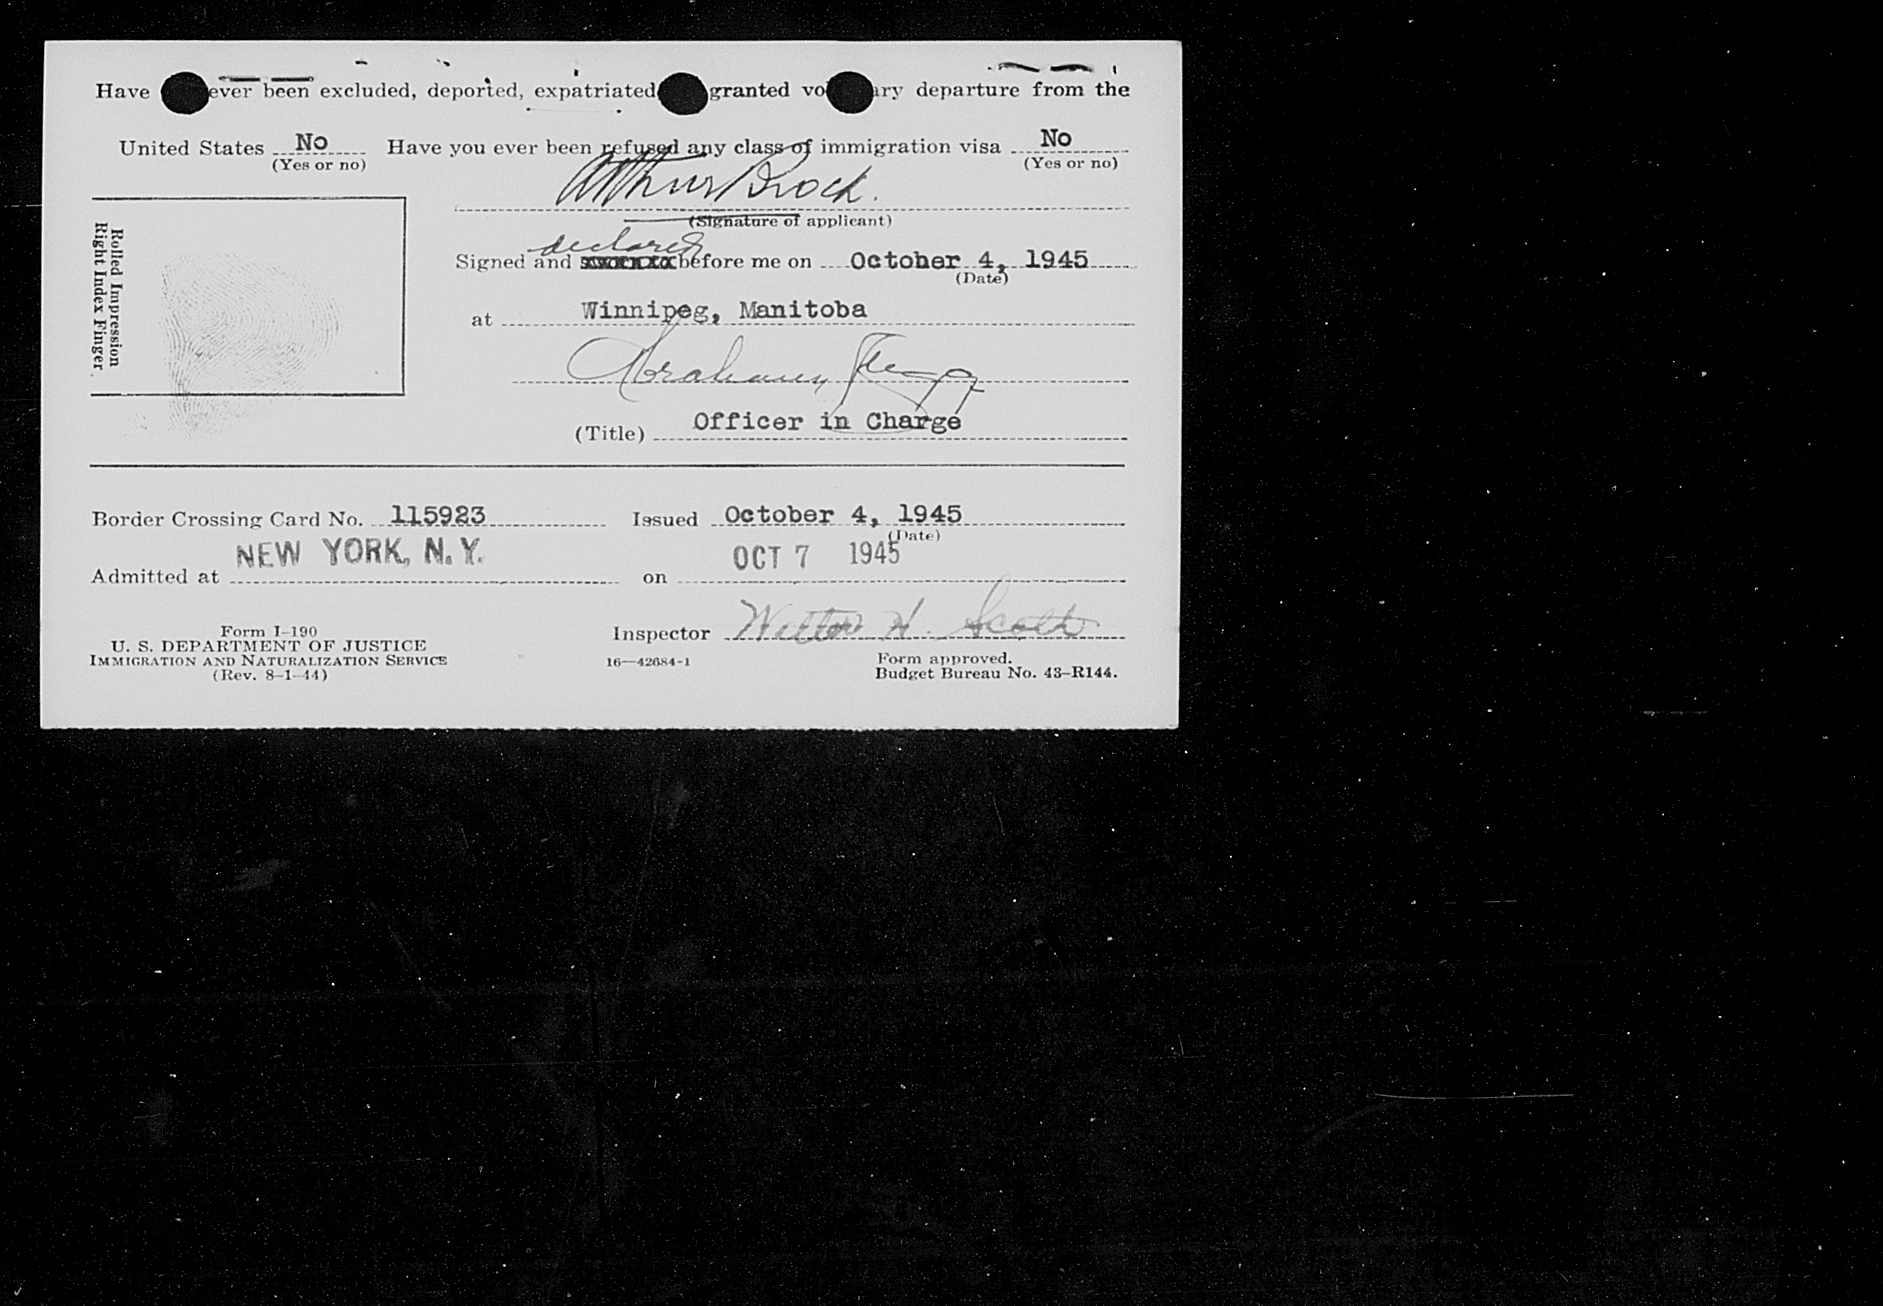 Have ever been excluded, deported, expatriated granted vo ary departure from the
United States No Have you ever been refused any class of immigration visa No
(Yes or no) (Yes or no)
Arthur Brock.
(Signature of applicant)
Rolled Impression
Right Index Finger
declared
Signed and before me on October 4, 1945
(Date)
at Winnipeg, Manitoba
Abraham
(Title) Officer in Charge
Border Crossing Card No. 115923 Issued October 4, 1945
(Date)
Admitted at NEW YORK, N.Y. on OCT 7 1945
Inspector H. Scott
Form I-190
U. S. DEPARTMENT OF JUSTICE
IMMIGRATION AND NATURALIZATION SERVICE
(Rev. 8-1-44)
16—42684-1
Form approved.
Budget Bureau No. 43-R144.